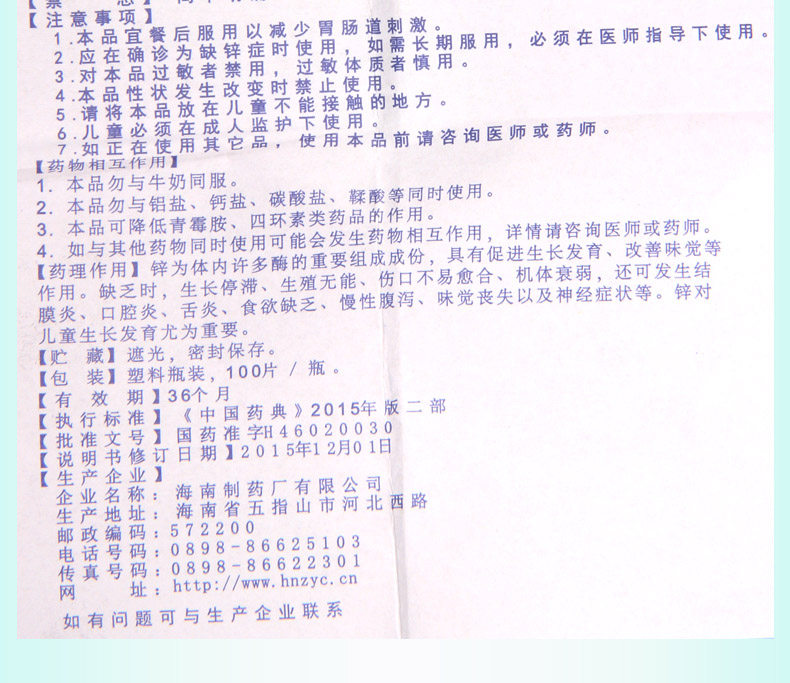 【注意事项】
1.本品宜餐后服用以减少胃肠道刺激。
2.应在确诊为缺锌症时使用，如需长期服用，必须在医师指导下使用。
3.对本品过敏者禁用，过敏体质者慎用。
4.本品性状发生改变时禁止使用。
5.请将本品放在儿童不能接触的地方。
6.儿童必须在成人监护下使用。
7.如正在使用其它品，使用本品前请咨询医师或药师。
【药物相互作用】
1. 本品勿与牛奶同服。
2. 本品勿与铝盐、钙盐、碳酸盐、鞣酸等同时使用。
3. 本品可降低青霉胺、四环素类药品的作用。
4. 如与其他药物同时使用可能会发生药物相互作用，详情请咨询医师或药师。
【药理作用】锌为体内许多酶的重要组成成份，具有促进生长发育、改善味觉等
作用。缺乏时，生长停滞、生殖无能、伤口不易愈合、机体衰弱，还可发生结
膜炎、口腔炎、舌炎、食欲缺乏、慢性腹泻、味觉丧失以及神经症状等。锌对
儿童生长发育尤为重要。
【贮 藏】遮光，密封保存。
【包 装】塑料瓶装，100片 / 瓶。
【有 效 期】36个月
【执行标准】《中国药典》2015年版二部
【批准文号】国药准字H46020030
【说明书修订日期】2015年12月01日
【生产企业】
企业名称：海南制药厂有限公司
生产地址：海南省五指山市河北西路
邮政编码：572200
电话号码：0898-86625103
传真号码：0898-86622301
网 址：http://www.hnzyc.cn
如有问题可与生产企业联系